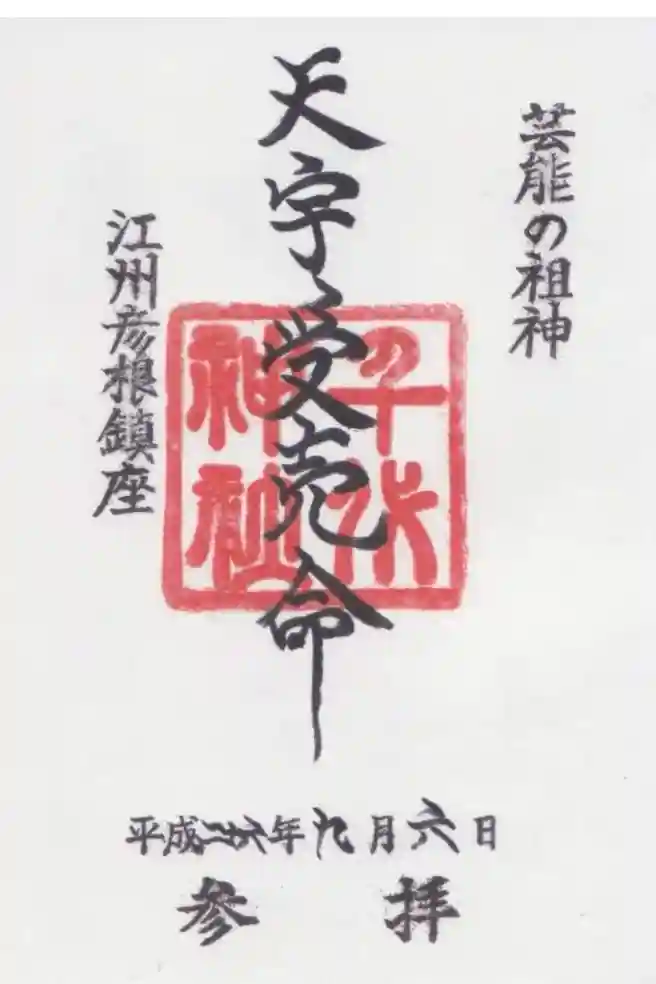 芸能の祖神
天宇受売命
江州彦根鎮座
千代
神社
平成二十六年九月六日
参拝